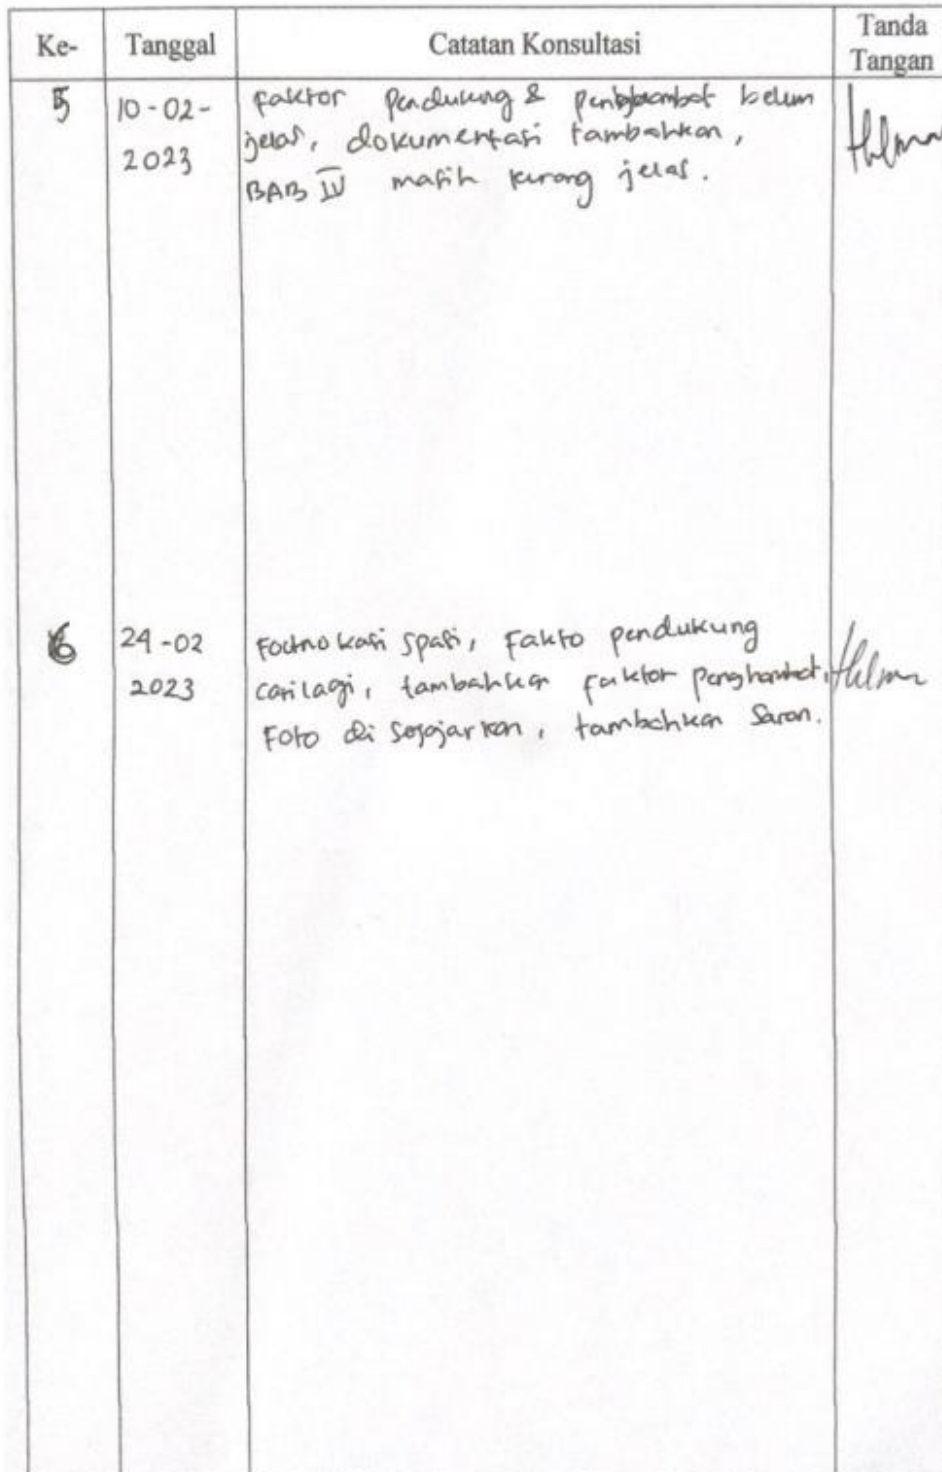 Ke- Tanggal Catatan Konsultasi Tanda Tangan
5 10-02-2023 Faktor Pendukung & Penghambat belum
jelas, dokumentasi tambahkan,
BAB IV masih kurang jelas.
6 24-02 2023 Footno kasi spasi, Fakto pendukung
cari lagi, tambahkan faktor penghambat,
Foto di sejajarkan, tambahkan Saran.